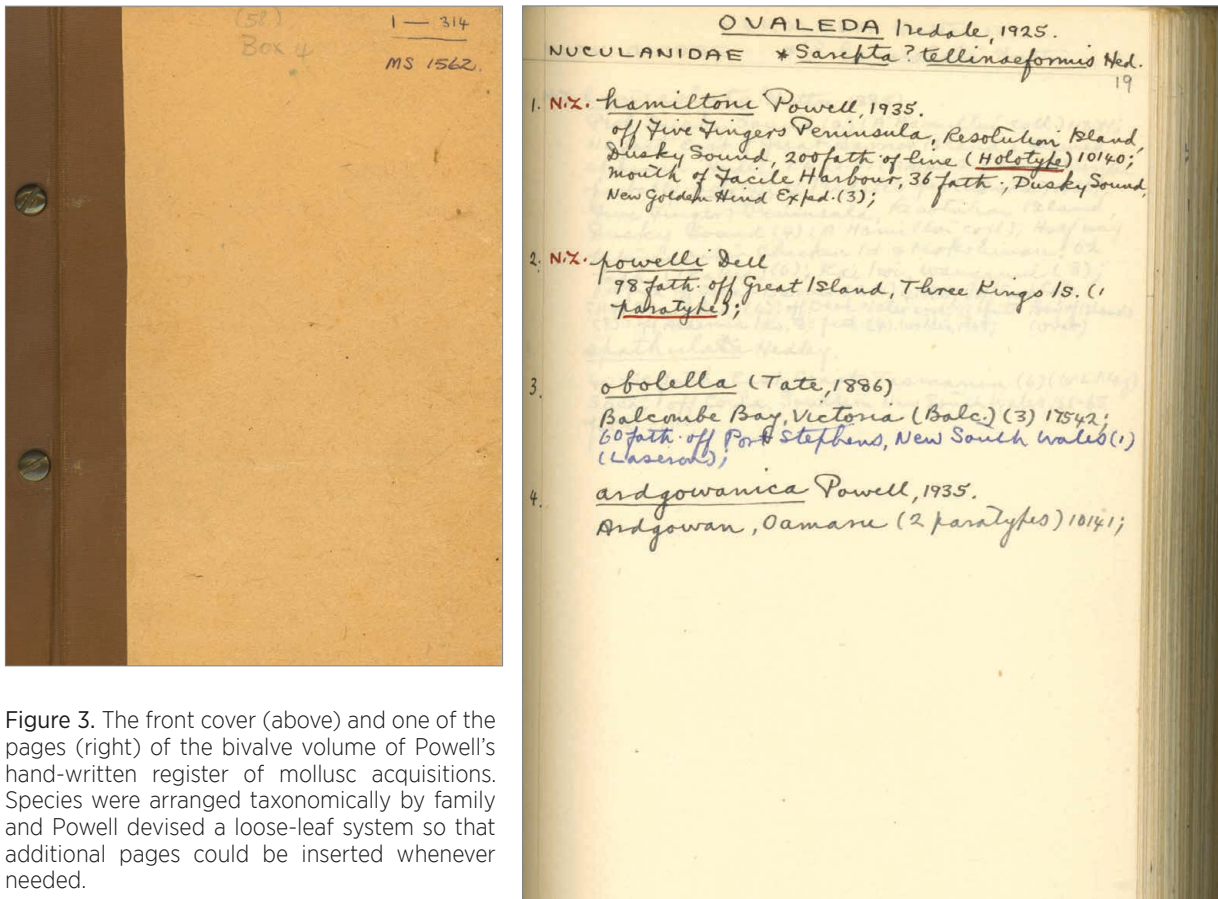 (58)
Box 4
1 — 314
MS 1562.
Figure 3. The front cover (above) and one of the
pages (right) of the bivalve volume of Powell's
hand-written register of mollusc acquisitions.
Species were arranged taxonomically by family
and Powell devised a loose-leaf system so that
additional pages could be inserted whenever
needed.
OVALEDA Iredale, 1925.
NUCULANIDAE *Sarepta? tellinaeformis Hed.
19
1. N.Z. hamiltoni Powell, 1935.
off Five Fingers Peninsula, Resolution Island,
Dusky Sound, 200 fath. of line (Holotype) 10140;
mouth of Facile Harbour, 36 fath., Dusky Sound,
New Golden Hind Exped. (3);
2. N.Z. powelli Dell
98 fath. off Great Island, Three Kings Is. (1
paratype);
3. obolella (Tate, 1886)
Balcombe Bay, Victoria (Balc.) (3) 17542;
60 fath. off Port Stephens, New South Wales (1)
(Laseron);
4. ardgowanica Powell, 1935.
Ardgowan, Oamaru (2 paratypes) 10141;